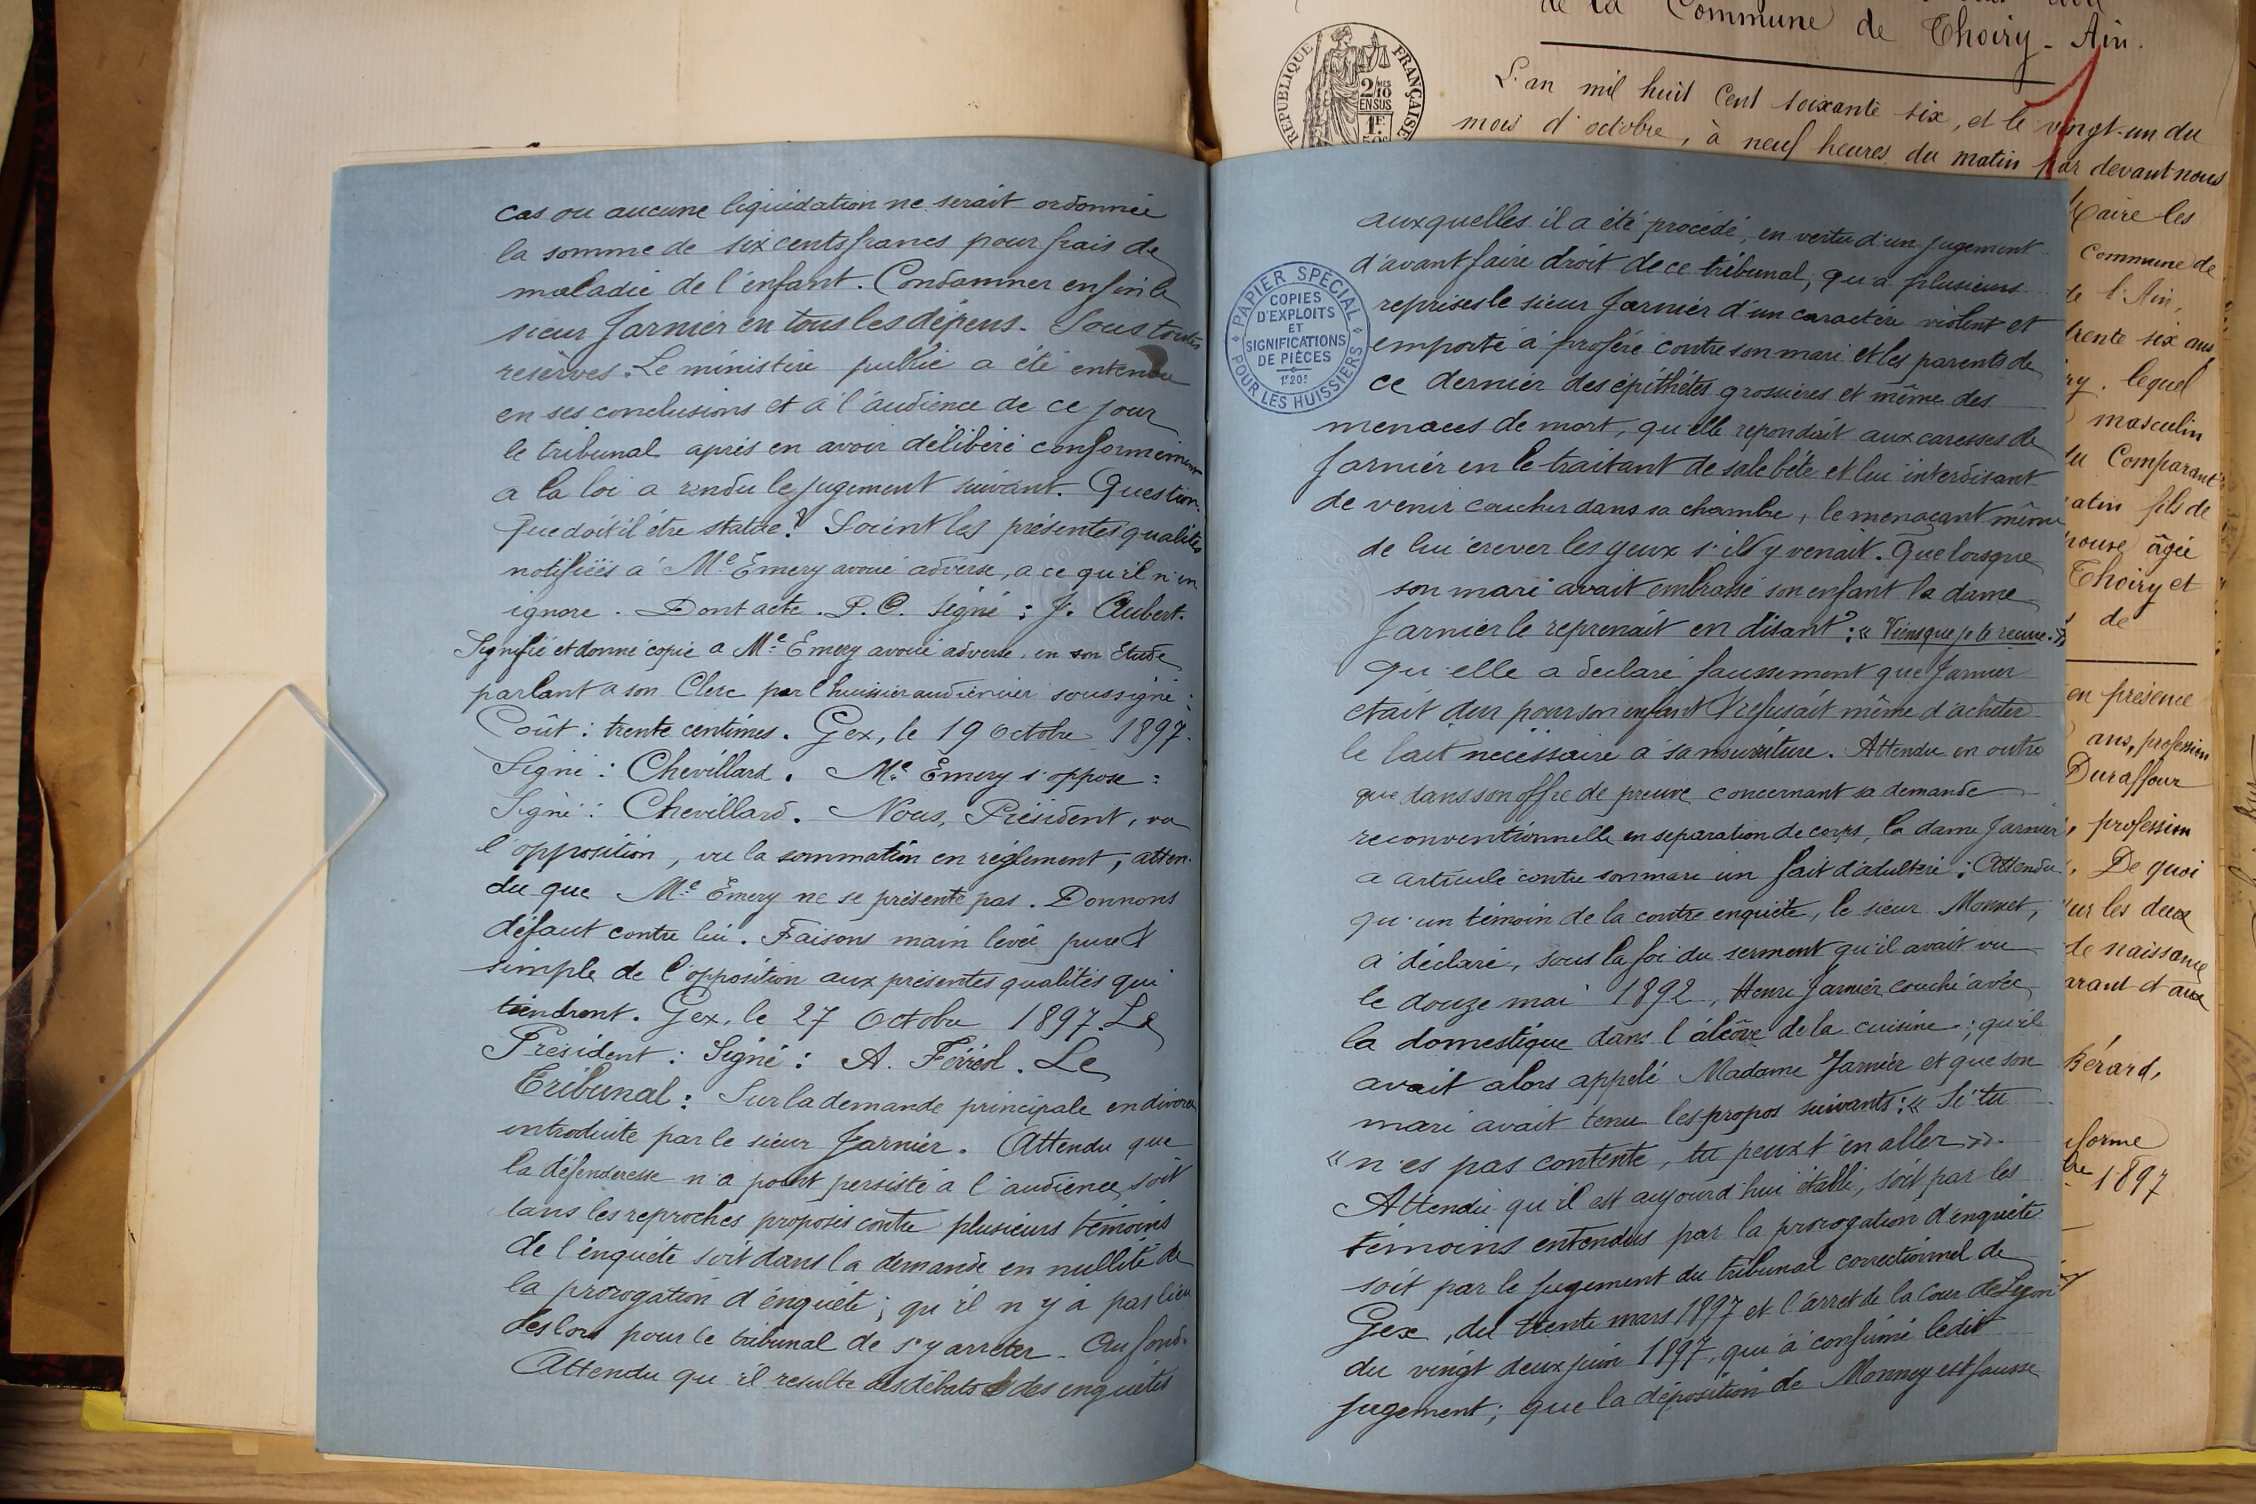 cas ou aucune liquidation ne serait ordonnée
la somme de six cents francs pour frais de
maladie de l'enfant. Condamner enfin le
sieur Jarnier en tous les dépens. Sous toutes
réserves. Le ministère public a été entendu
en ses conclusions et à l'audience de ce jour
le tribunal après en avoir délibéré conformément
a la loi a rendu le jugement suivant. Question.
Que doit il être statué? Soient les présentes qualités
notifiées à Me Emery avoué adverse, a ce qu'il n'en
ignore. Dont acte. P. O. Signé: J. Aubert.
Signifié et donné copie a Me Emery avoué adverse, en son Etude
parlant a son Clerc par l'huissier audiencier soussigné:
Coût: trente centimes. Gex, le 19 octobre 1897.
Signé: Chevillard. Me Emery s'oppose:
Signé: Chevillard. Nous, Président, vu
l'opposition, vu la sommation en règlement, atten-
du que Me Emery ne se présente pas. Donnons
défaut contre lui. Faisons main levée pure et
simple de l'opposition aux présentes qualités qui
tiendront. Gex, le 27 Octobre 1897. Le
Président: Signé: A. Le
Tribunal: Sur la demande principale en divorce
introduite par le sieur Jarnier. Attendu que
la défenderesse n'a point persisté à l'audience, soit
dans les reproches proposés contre plusieurs témoins
de l'enquête soit dans la demande en nullité de
la prorogation d'enquête; qu'il n'y a pas lieu
des lors pour le tribunal de s'y arrêter. Au fond.
Attendu qu'il résulte des débats & des enquêtes
auxquelles il a été procédé, en vertu d'un jugement
d'avant faire droit de ce tribunal, qu'a plusieurs
reprises le sieur Jarnier d'un caractère violent et
emporté à proféré contre son mari et les parents de
ce dernier des épithètes grossières et même des
menaces de mort, qu'elle repondait aux caresses de
Jarnier en le traitant de sale bête et lui interdisant
de venir coucher dans sa chambre, le menaçant même
de lui crever les yeux s'il y venait. Que lorsque
son mari avait embrassé son enfant la dame
Jarnier le reprenait en disant: « Viens que je te »
qu'elle a declaré faussement que Jarnier
était dur pour son enfant & refusait même d'acheter
le lait nécessaire à sa nourriture. Attendu en outre
que dans son offre de preuve concernant sa demande
reconventionnelle en séparation de corps, la dame Jarnier
a articulé contre son mari un fait d'adultère; Attendu
qu'un témoin de la contre enquête, le sieur Monnet,
a déclaré, sous la foi du serment qu'il avait vu
le douze mai 1892, Henri Jarnier couché avec
la domestique dans l'alcôve de la cuisine; qu'il
avait alors appelé Madame Jarnier et que son
mari avait tenu les propos suivants: « Si tu
« n'es pas contente, tu peux t'en aller ».
Attendu qu'il est aujourd'hui établi, soit par les
témoins entendus par la prorogation d'enquête
soit par le jugement du tribunal correctionnel de
Gex, du trente mars 1897 et l'arret de la Cour de Lyon
du vingt deux juin 1897, qui a confirmé ledit
jugement; que la déposition de Monney est fausse
PAPIER SPECIAL
COPIES
D'EXPLOITS
ET
SIGNIFICATIONS
DE PIÈCES
POUR LES HUISSIERS
de la Commune de Thoiry - Ain.
REPUBLIQUE FRANÇAISE
2/10
EN SUS
L'an mil huit Cent soixante six, et le vingt-un du
mois d'octobre, à neuf heures du matin par devant nous
Maire les
Commune de
de l'Ain,
trente six ans
lequel
masculin
du Comparant
matin fils de
âgée
Thoiry et
de
en présence
ans, profession
Duraffour
profession
De quoi
sur les deux
de naissance
et aux
Bérard,
1897